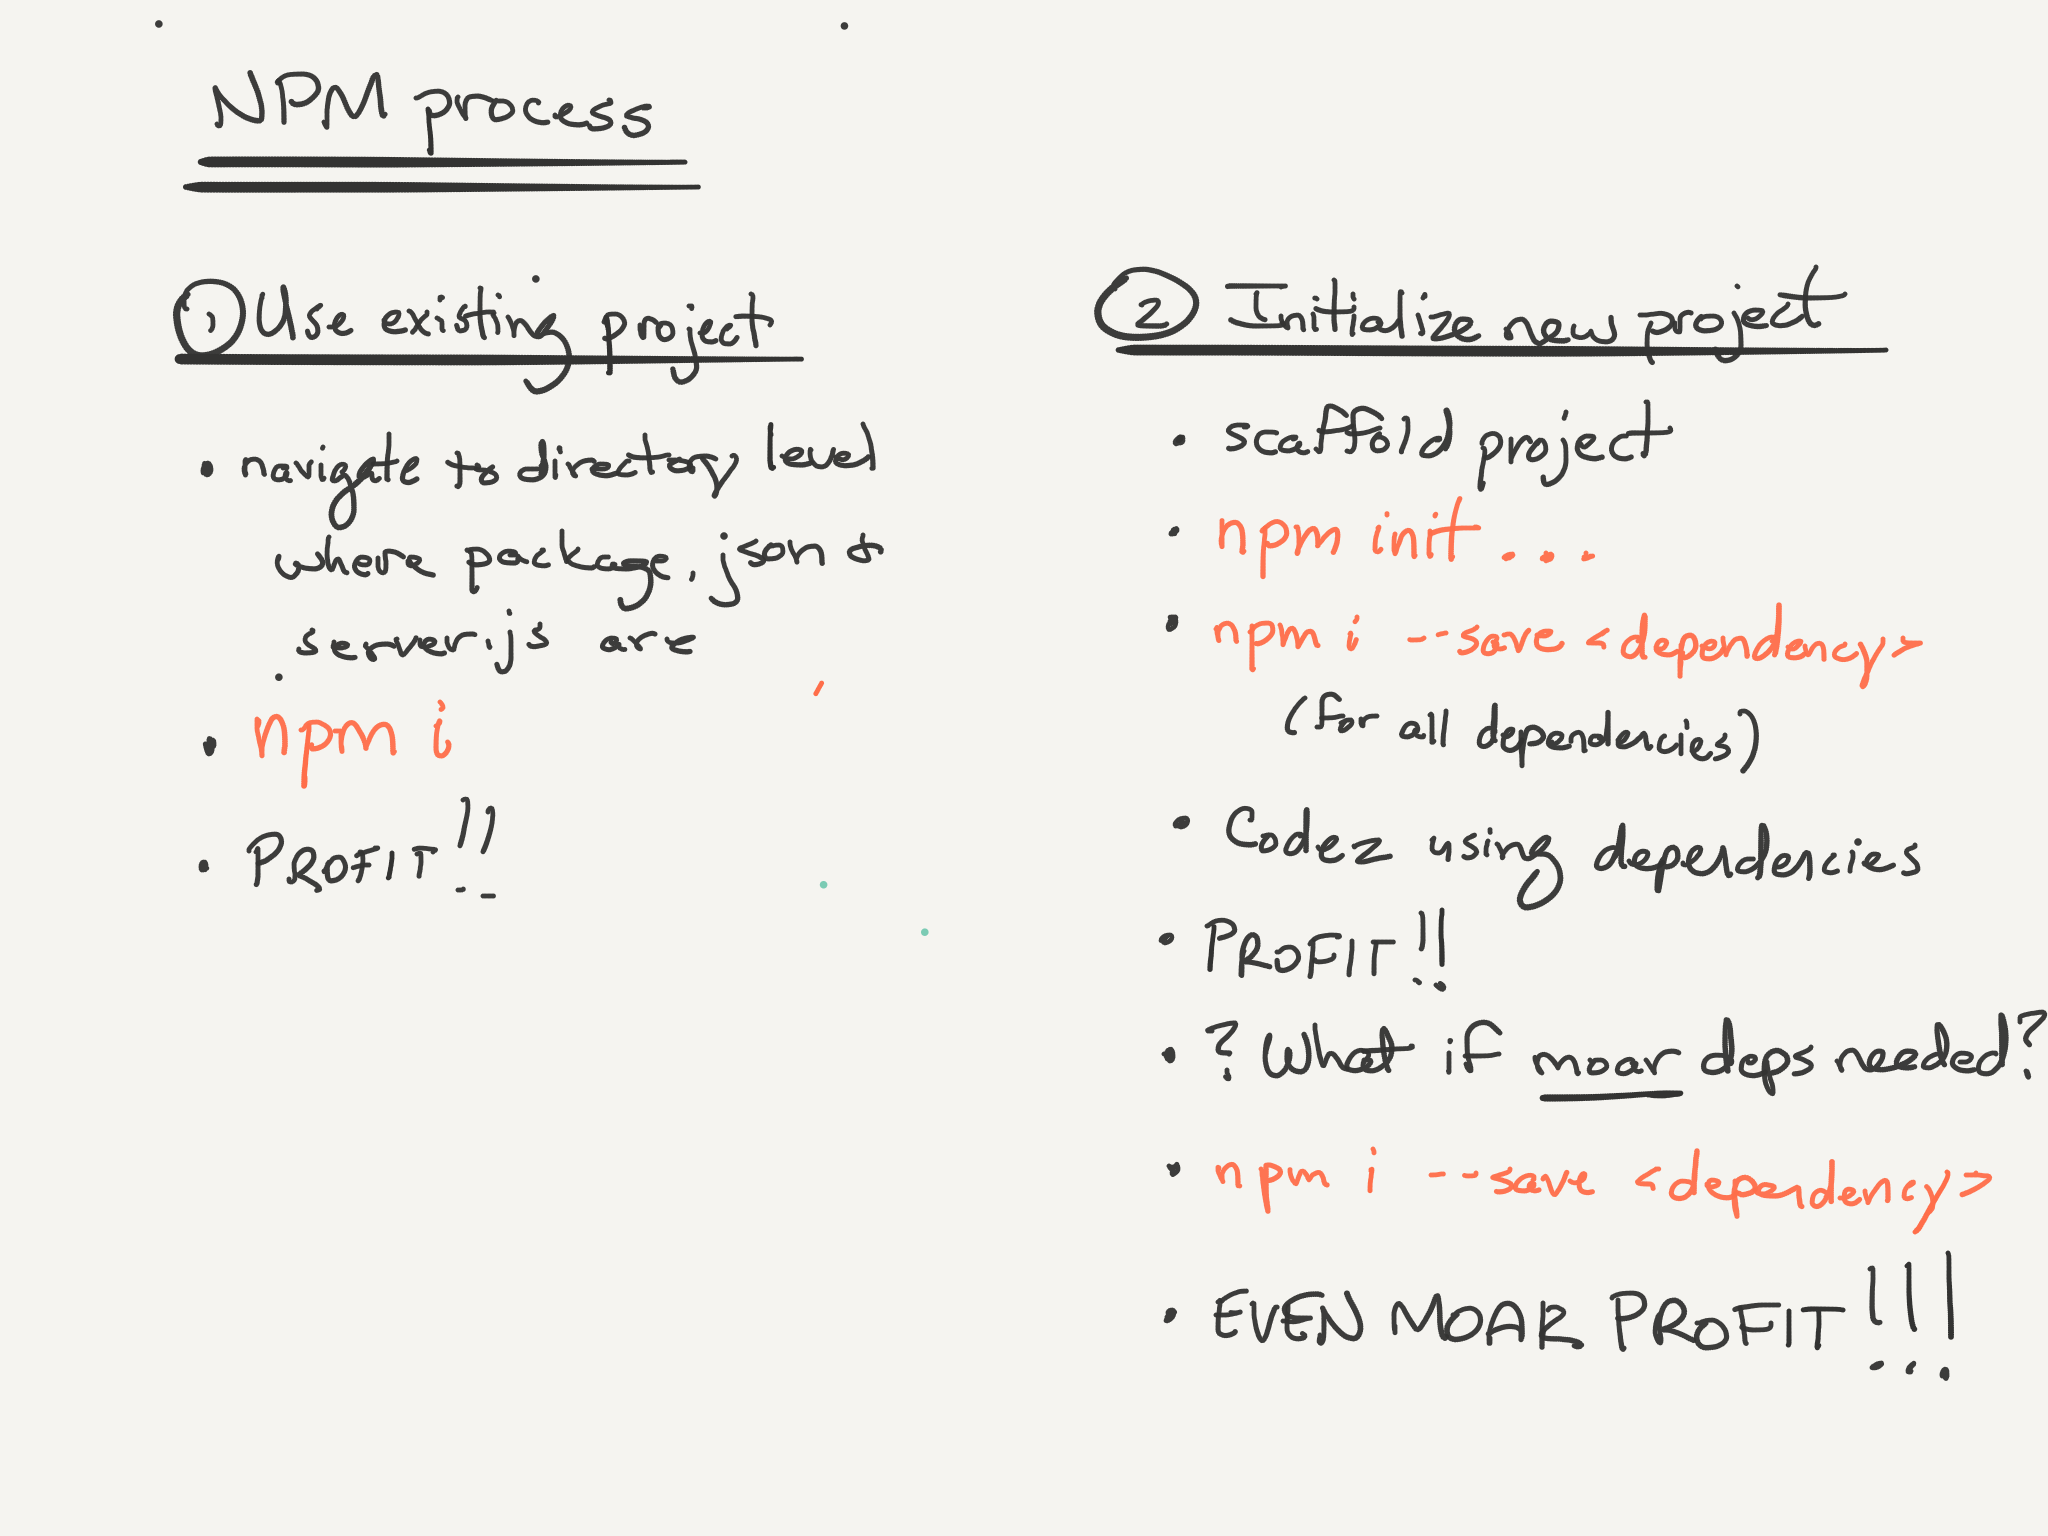 NPM process
① Use existing project
• navigate to directory level
where package.json &
server.js are
• npm i
• PROFIT!!
② Initialize new project
• scaffold project
• npm init...
• npm i --save <dependency>
(for all dependencies)
• Codez using dependencies
• PROFIT!!
• ? What if moar deps needed?
• npm i --save <dependency>
• EVEN MOAR PROFIT!!!